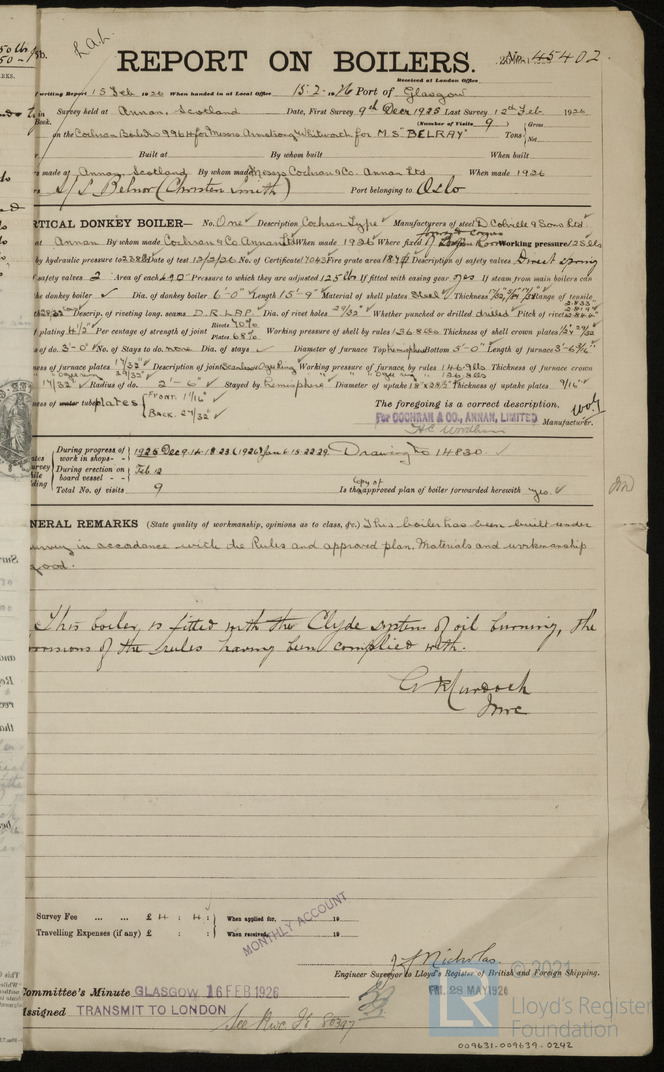 REPORT ON BOILERS.
No. 45402
Received at London Office
writing Report 15 Feb 1926 When handed in at Local Office 15.2.1926 Port of Glasgow
Survey held at Annan, Scotland Date, First Survey 9th Decr 1925 Last Survey 12th Feb 1926
on the Cochran Boiler 9964 for Messrs Armstrong Whitworth for M.S "BELRAY" (Number of Visits 9) Tons Gross Net
Built at By whom built When built
made at Annan, Scotland By whom made Messrs Cochran & Co. Annan Ltd When made 1926
S/S Belnor (Christen Smith) Port belonging to Oslo
RTICAL DONKEY BOILER— No. One Description Cochran Type Manufacturers of steel D Colville & Sons Ltd
at Annan By whom made Cochran & Co Annan Ltd When made 1926 Where fixed Working pressure 125 lbs
by hydraulic pressure to 228 lbs Date of test 12/2/26 No. of Certificate 17043 Fire grate area Description of safety valves Direct spring
safety valves 2 Area of each 4.90" Pressure to which they are adjusted 125 lbs If fitted with easing gear yes If steam from main boilers can
the donkey boiler Dia. of donkey boiler 6'-0" Length 15'-9" Material of shell plates Steel Thickness Range of tensile
Descrip. of riveting long. seams D.R. LAP. Dia. of rivet holes 29/32" Whether punched or drilled drilled Pitch of rivets
plating 4 1/2" Per centage of strength of joint Rivets 70% Plates 68% Working pressure of shell by rules 136.8 lbs Thickness of shell crown plates
s of do. 3'-0" No. of Stays to do. none Dia. of stays Diameter of furnace Top hemisphere Bottom 5'-0" Length of furnace
ness of furnace plates 17/32" Description of joint Seamless Ogee Ring Working pressure of furnace by rules 146.9 lbs Thickness of furnace crown
17/32" Radius of do. 2'-6" Stayed by hemisphere Diameter of uptake Thickness of uptake plates 9/16"
ness of water tube plates Front 11/16" Back 27/32" The foregoing is a correct description.
For COCHRAN & CO., ANNAN, LIMITED Manufacturer.
During progress of work in shops - - 1925 Dec 9.14.18.23 (1926) Jan 6.15.22.29. Drawing No 14830
During erection on board vessel - - Feb 12
Total No. of visits 9 Is the copy of approved plan of boiler forwarded herewith yes.
NERAL REMARKS (State quality of workmanship, opinions as to class, &c.) This boiler has been built under
survey in accordance with the Rules and approved plan, Materials and workmanship
good.
This boiler is fitted with the Clyde system of oil burning, the
provisions of the rules having been complied with.
G Murdoch
Survey Fee ... ... £ 4 : 4 : When applied for, 19
Travelling Expenses (if any) £ : : When received, 19
MONTHLY ACCOUNT
J S Nicholas.
Engineer Surveyor to Lloyd's Register of British and Foreign Shipping.
Committee's Minute GLASGOW 16 FEB 1926
FRI. 28 MAY 1926
Assigned TRANSMIT TO LONDON
© 2021
LR
Lloyd's Register
Foundation
009631-009639-0242